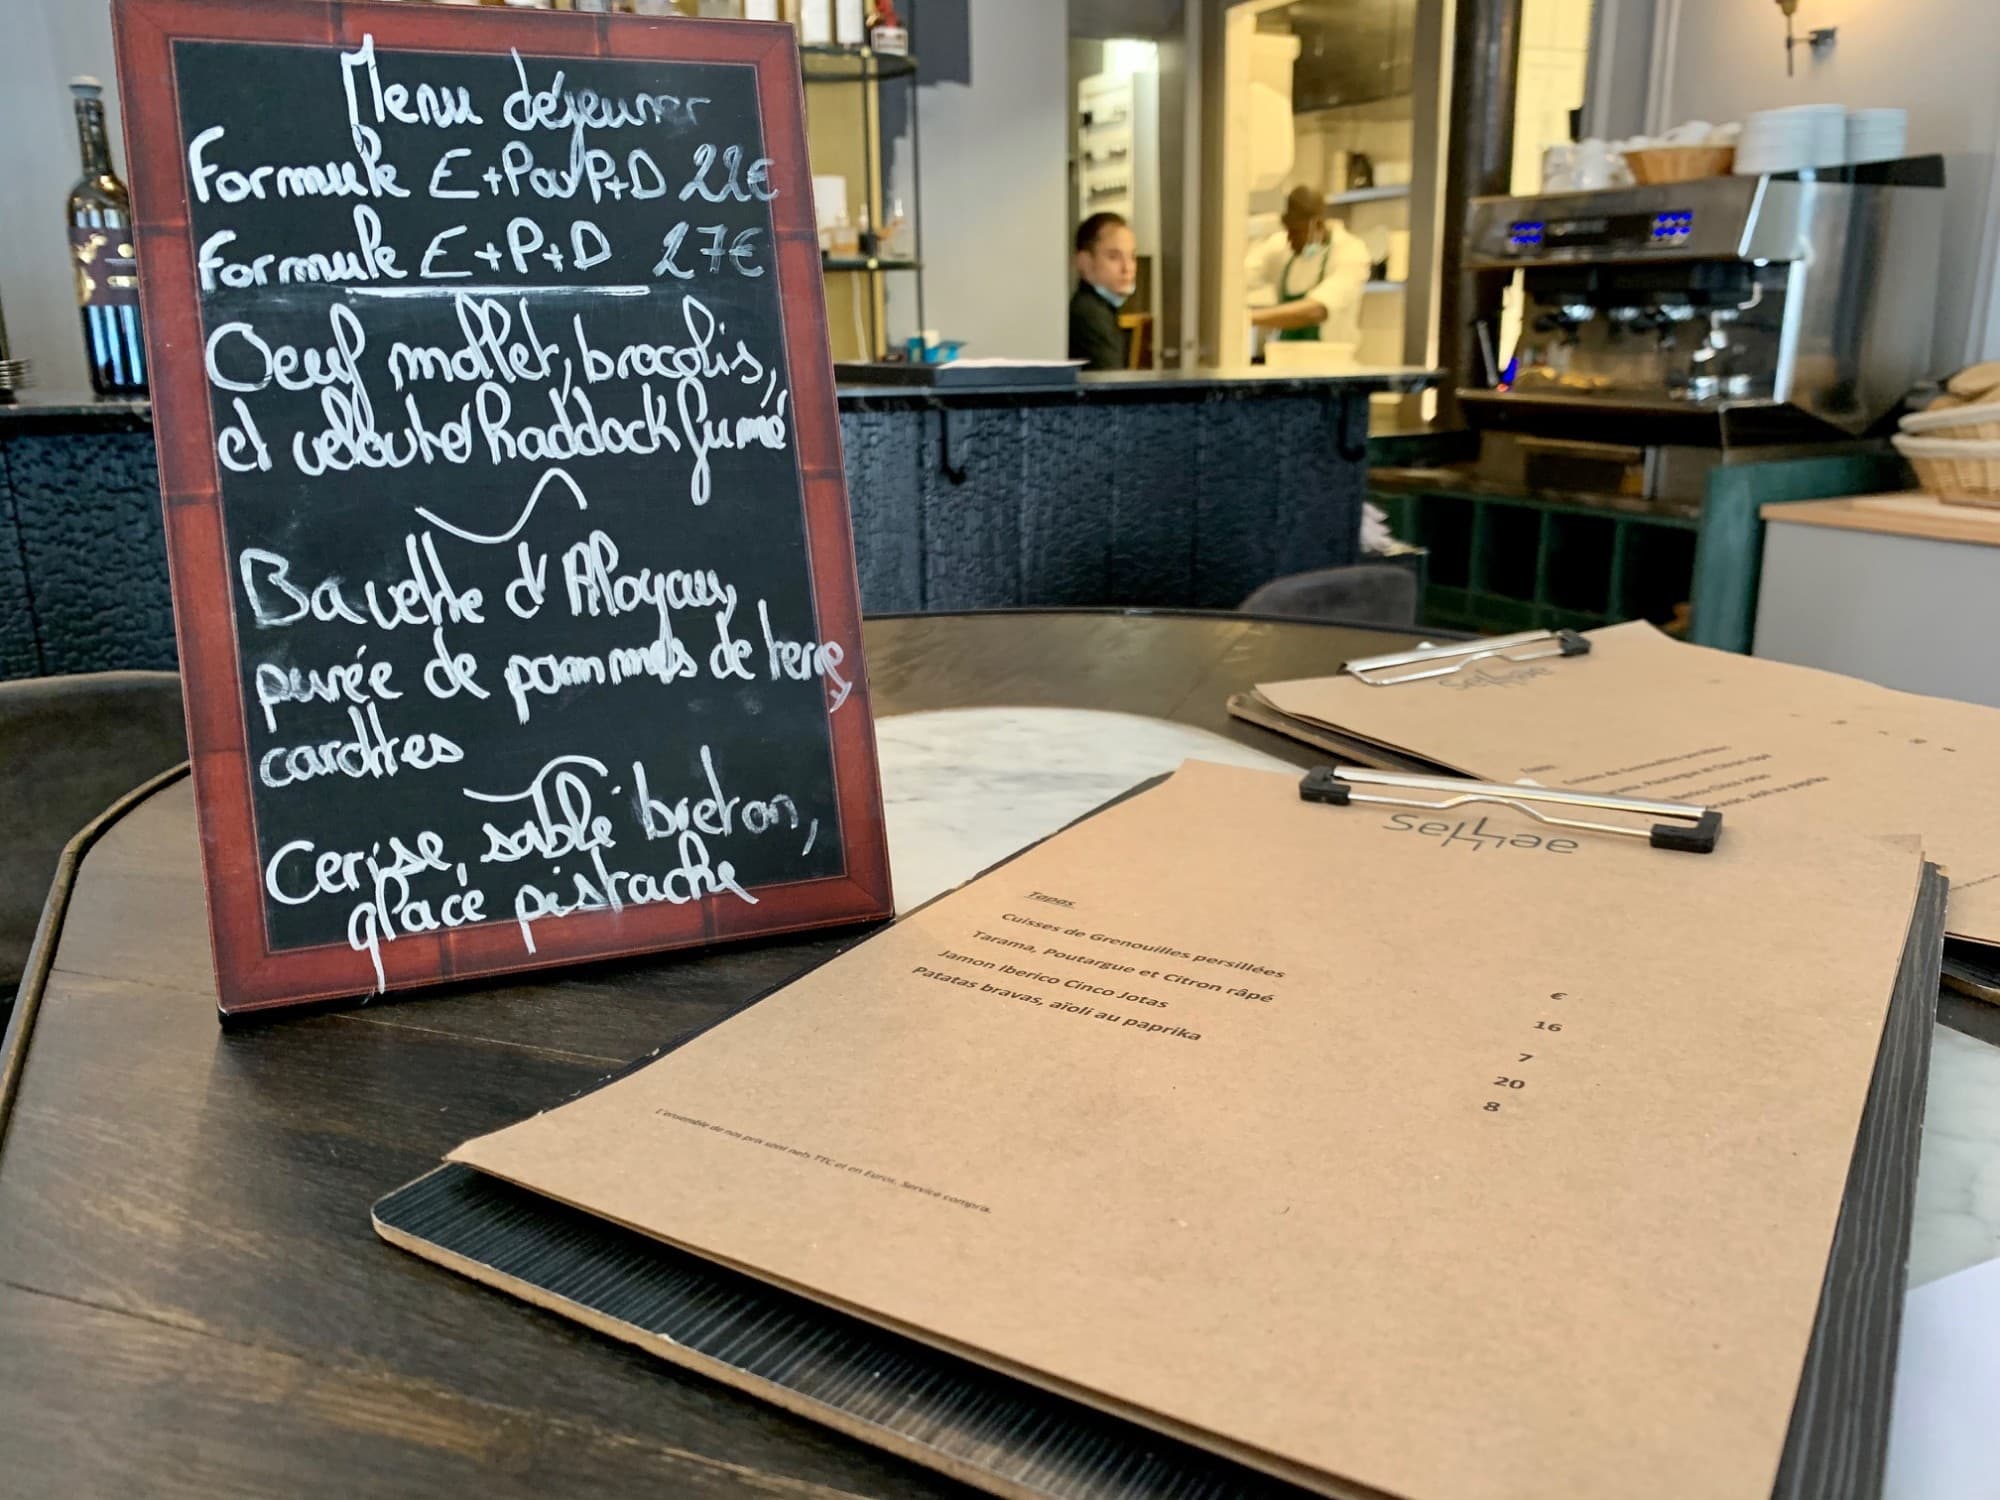 Menu déjeuner
Formule E+P ou P+D 22€
Formule E+P+D 27€
Oeuf mollet, brocolis,
et velouté haddock fumé
Bavette d'Aloyau,
purée de pommes de terre,
carottes
Cerise, sablé breton,
glace pistache
Tapas
€
Cuisses de Grenouilles persillées 16
Tarama, Poutargue et Citron râpé 7
Jamon Iberico Cinco Jotas 20
Patatas bravas, aïoli au paprika 8
L'ensemble de nos prix sont nets TTC et en Euros. Service compris.